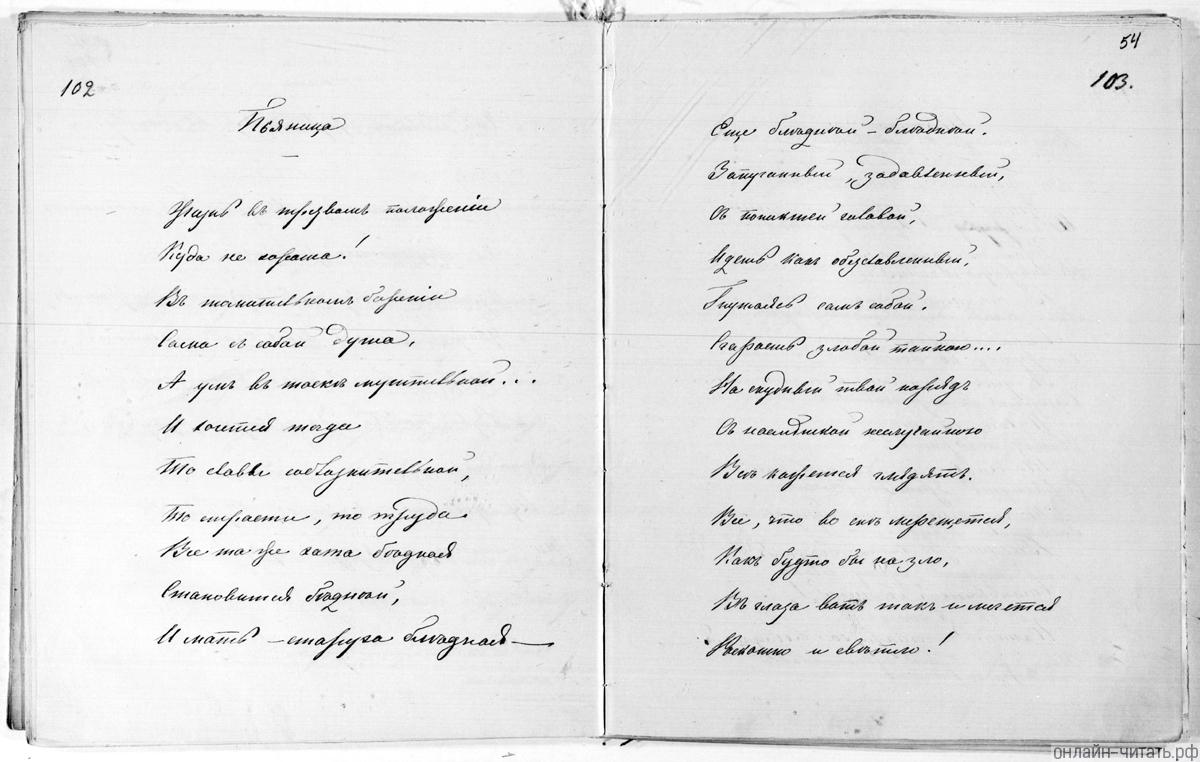 102
Пьяница
Жизнь въ трезвомъ положеніи
Куда не хороша!
Въ томительномъ бореніи
Сама съ собой душа,
А умъ въ тоскѣ мучительной...
И хочется тогда
То славы соблазнительной,
То страсти, то труда
Все та же хата бѣдная
Становится бѣднѣй,
И мать – старуха блѣдная –
54
103.
Еще блѣднѣй – блѣднѣй.
Запуганный, задавленный,
Съ поникшей головой,
Идешь какъ обезславленный,
Гнушаясь самъ собой.
Сгараешь злобой тайною...
На скудный твой нарядъ
Съ насмѣшкой неслучайною
Всѣ кажется глядятъ.
Все, что во снѣ мерещется,
Какъ будто бы на зло,
Въ глаза вотъ такъ и мечется
Роскошно и свѣтло!
онлайн-читать.рф